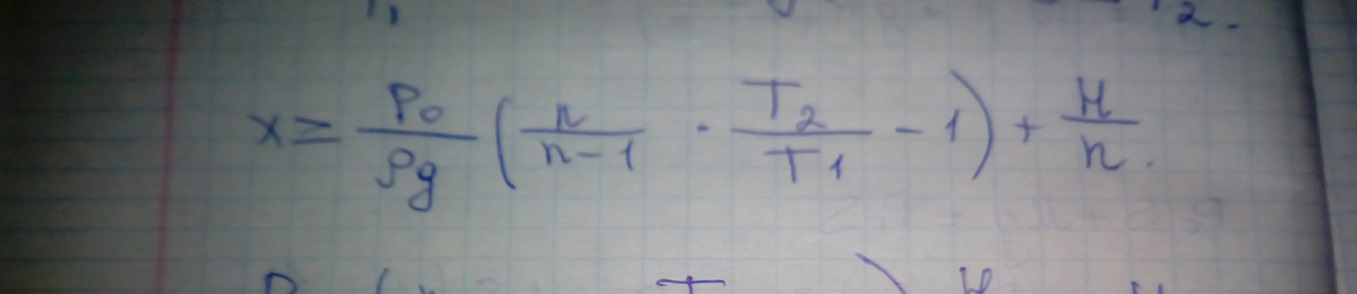 2.
x ≥ P₀/ρg (n/(n-1) · T₂/T1 - 1) + H/n.